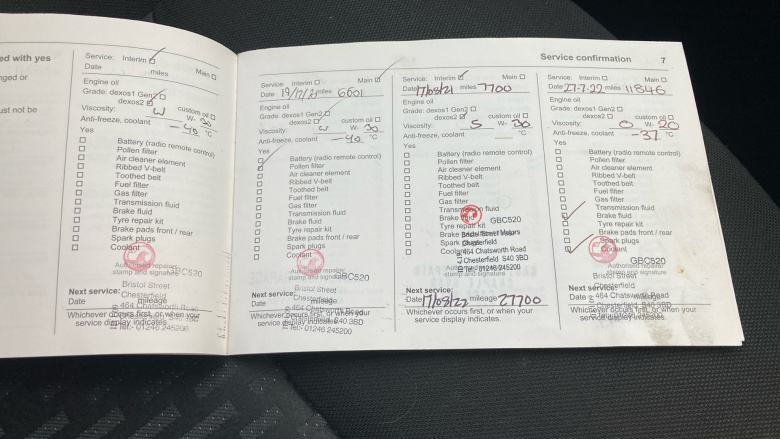 ed with yes
nged or
ust not be
Service: Interim ☑
Main ☐
Date miles
Engine oil
Grade: dexos1 Gen2 ☐
dexos2 ☑ custom oil ☐
Viscosity: W- 30
Anti-freeze, coolant -40 °C
Yes
☐ Battery (radio remote control)
☐ Pollen filter
☐ Air cleaner element
☐ Ribbed V-belt
☐ Toothed belt
☐ Fuel filter
☐ Gas filter
☐ Transmission fluid
☐ Brake fluid
☐ Tyre repair kit
☐ Brake pads front / rear
☐ Spark plugs
☐ Coolant
Authorised repairer
stamp and signature GBC520
Bristol Street
Next service: Chesterfield
Date mileage
464 Chatsworth Road
Whichever occurs first, or when your
service display indicates.
Tel:- 01246 245200
Service: Interim ☐ Main ☑
Date 19/1/21 miles 6601
Engine oil
Grade: dexos1 Gen2 ☐
dexos2 ☑ custom oil ☐
Viscosity: W- 30
Anti-freeze, coolant -40 °C
Yes
☐ Battery (radio remote control)
☑ Pollen filter
☐ Air cleaner element
☐ Ribbed V-belt
☐ Toothed belt
☐ Fuel filter
☐ Gas filter
☐ Transmission fluid
☐ Brake fluid
☐ Tyre repair kit
☐ Brake pads front / rear
☐ Spark plugs
☐ Coolant
Authorised repairer
stamp and signature GBC520
Bristol Street
Next service: Chesterfield
Date mileage
464 Chatsworth Road
Whichever occurs first, or when your
Chesterfield S40 3BD
service display indicates.
Tel:- 01246 245200
Service confirmation 7
Service: Interim ☑ Main ☐
Date 17/08/21 miles 7700
Engine oil
Grade: dexos1 Gen2 ☐
dexos2 ☑ custom oil ☐
Viscosity: 5 W- 30
Anti-freeze, coolant °C
Yes
☐ Battery (radio remote control)
☐ Pollen filter
☐ Air cleaner element
☐ Ribbed V-belt
☐ Toothed belt
☐ Fuel filter
☐ Gas filter
☐ Transmission fluid
☐ Brake fluid
☐ Tyre repair kit GBC520
☐ Brake pads front / rear
Bristol Street Motors
☐ Spark plugs
Chesterfield
☐ Coolant
464 Chatsworth Road
Chesterfield S40 3BD
Tel:- 01246 245200
Next service:
Date 17/08/22 mileage 27700
Whichever occurs first, or when your
service display indicates.
Service: Interim ☐ Main ☐
Date 27-7-22 miles 11846
Engine oil
Grade: dexos1 Gen2 ☐
dexos2 ☐ custom oil ☑
Viscosity: 0 W- 20
Anti-freeze, coolant -37 °C
Yes
☐ Battery (radio remote control)
☐ Pollen filter
☐ Air cleaner element
☐ Ribbed V-belt
☐ Toothed belt
☐ Fuel filter
☐ Gas filter
☐ Transmission fluid
☑ Brake fluid
☐ Tyre repair kit
☐ Brake pads front / rear
☐ Spark plugs
☑ Coolant
GBC520
Authorised repairer
stamp and signature
Bristol Street
Next service: Chesterfield
Date mileage
464 Chatsworth Road
Chesterfield S40 3BD
Whichever occurs first, or when your
service display indicates.